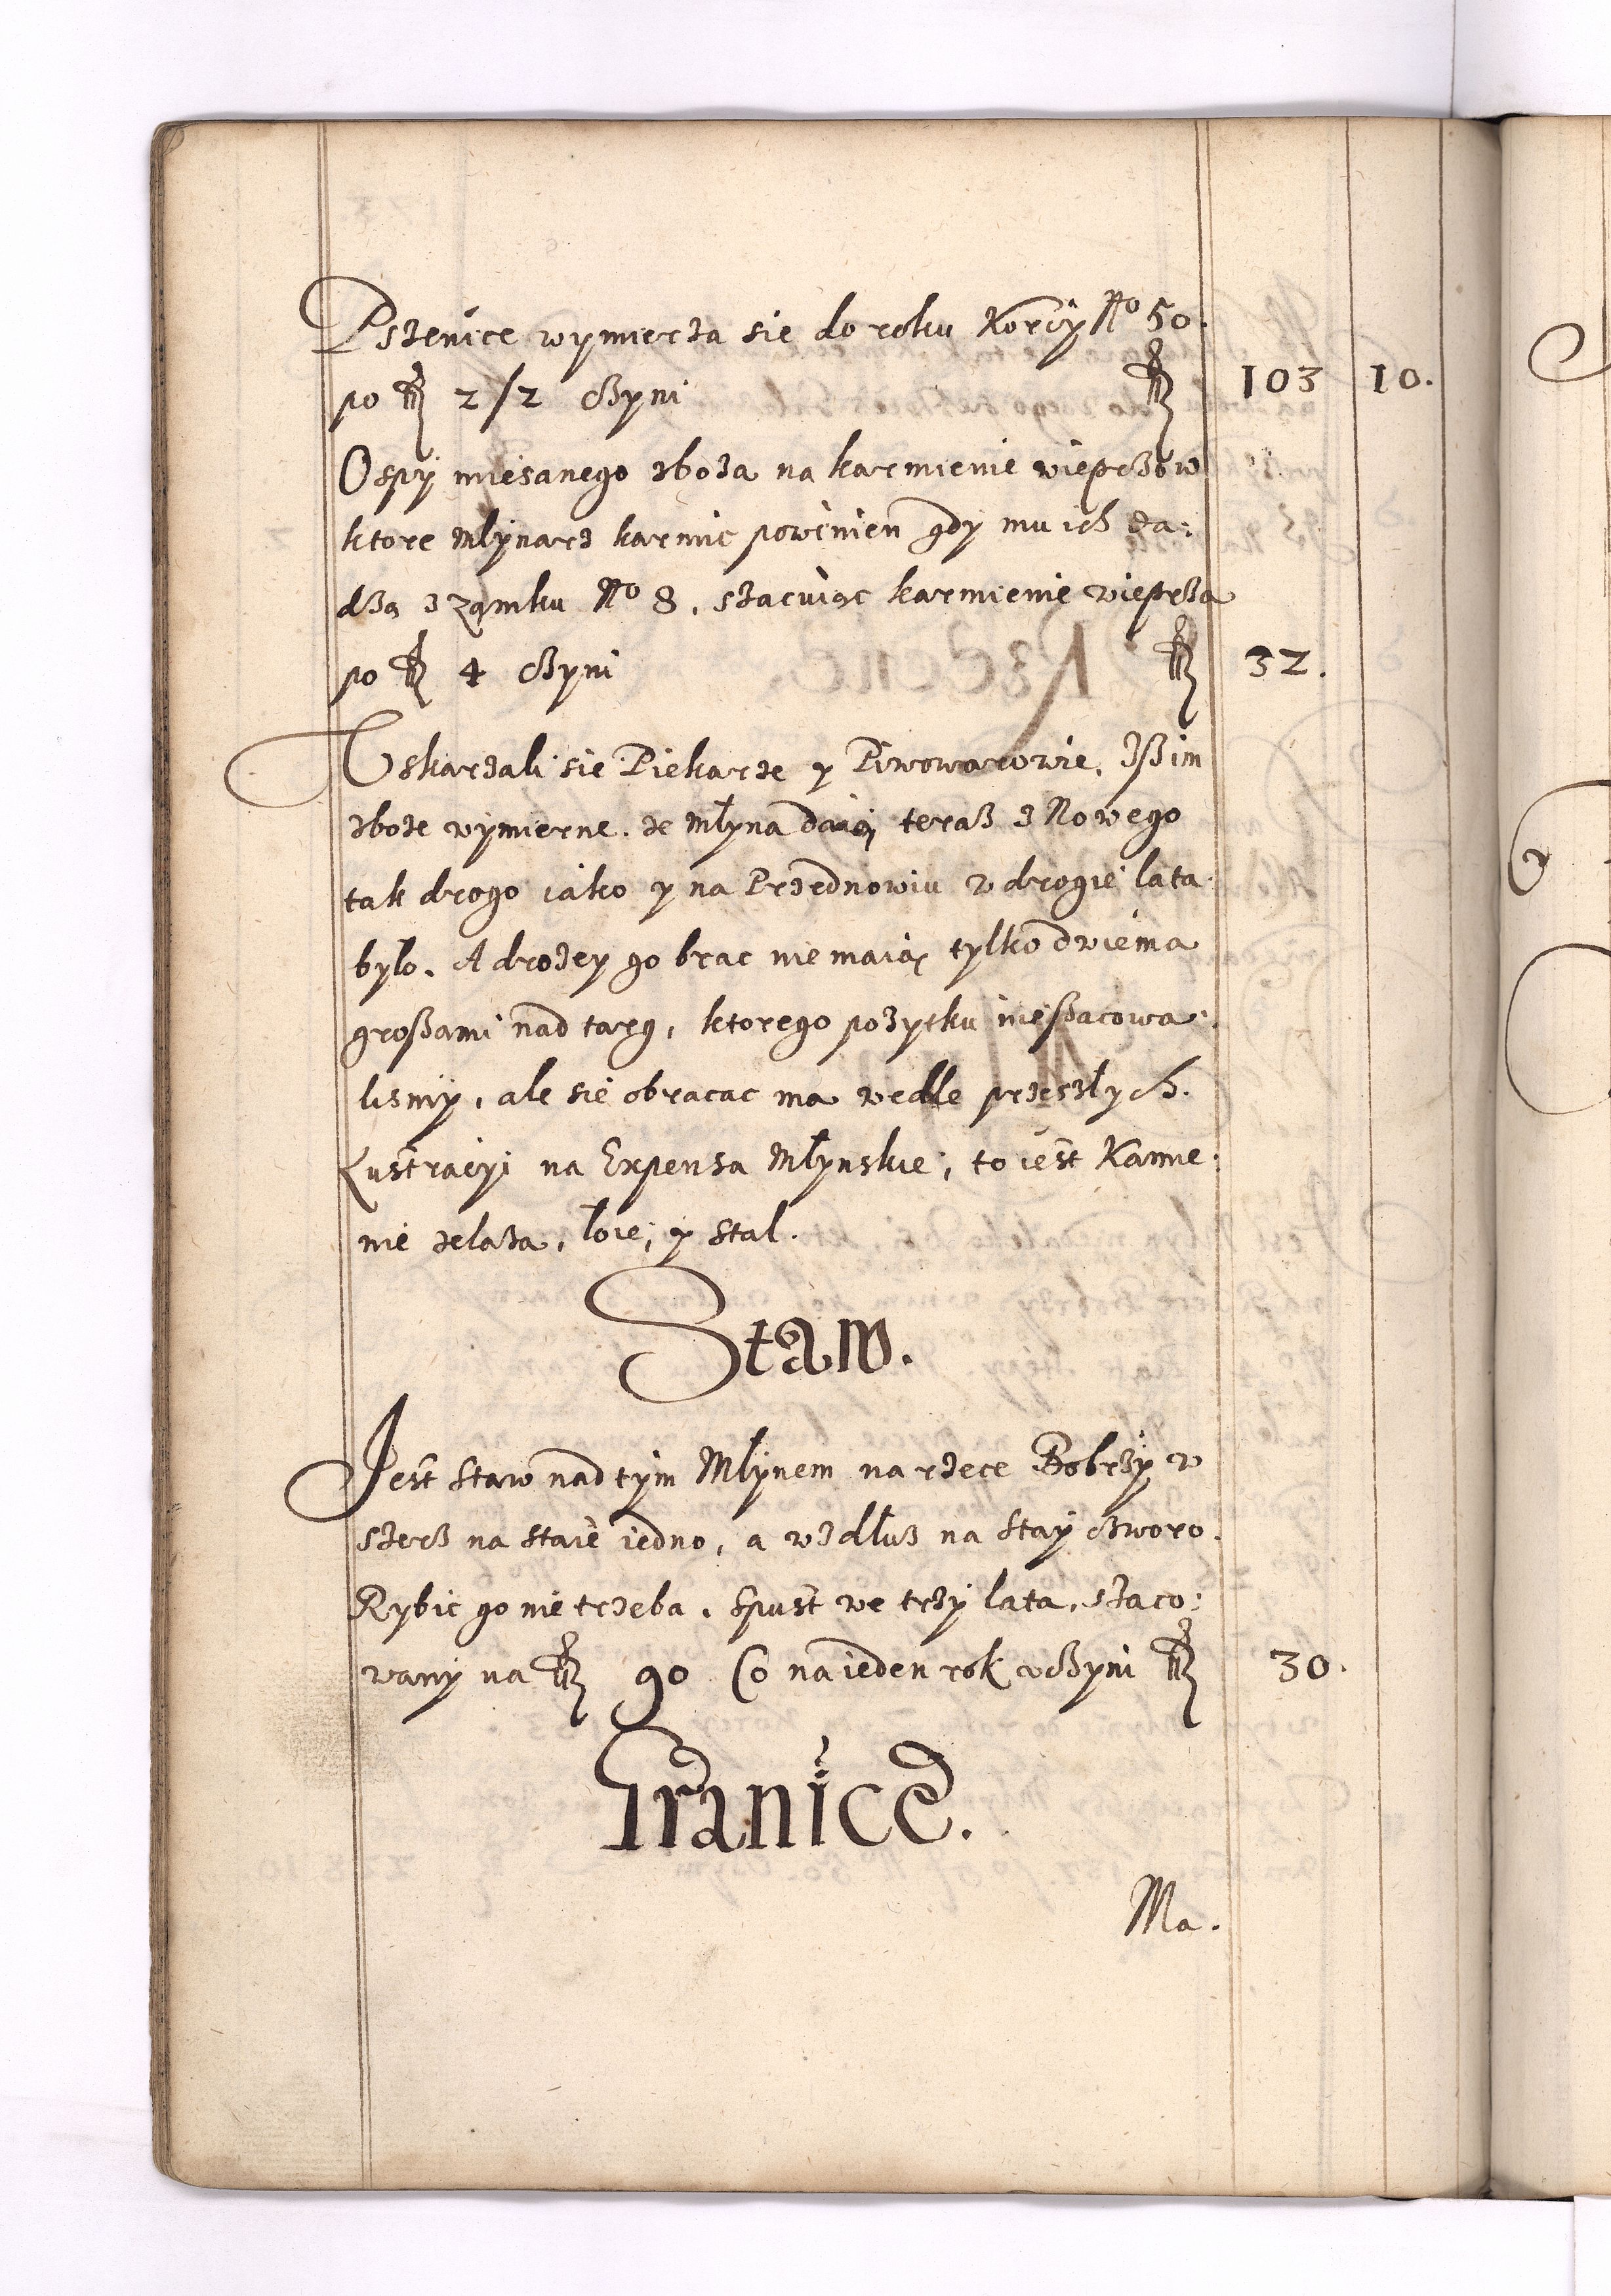 Pszenice wymierza sie do roku Korcy No 50.
po fl 2/2 czyni fl 103 10.
Ospy miesanego zboza na karmienie wieprzow
ktore Mlynarz karmic powinien gdy mu ich da:
dzą z zamku No 8. szacuiąc karmienie wieprza
po fl 4 czyni fl 32.
Uskarzali sie Piekarze y Piwowarowie, Iß im
zboze wymierne ze Mlyna daią teraß z Nowego
tak drogo iako y na Przednowiu w drogie lata
bylo. A drozey go brac nie maią tylko dwiema
großami nad targ, ktorego pozytku nie ßacowa:
lismy, ale sie obracac ma wedle przeszlych
Lustracyi na Expensa Mlynskie, to iest Kamie:
nie zelaza, loie, y stal.
Staw.
Jest staw nad tym Mlynem na rzece Bobrzy w
szerß na staie iedno, a wzdluß na stay czworo.
Rybic go nie trzeba. Spust we trzy lata, szaco:
wany na fl 90 Co na ieden rok uczyni fl 30.
Granice.
Ma.